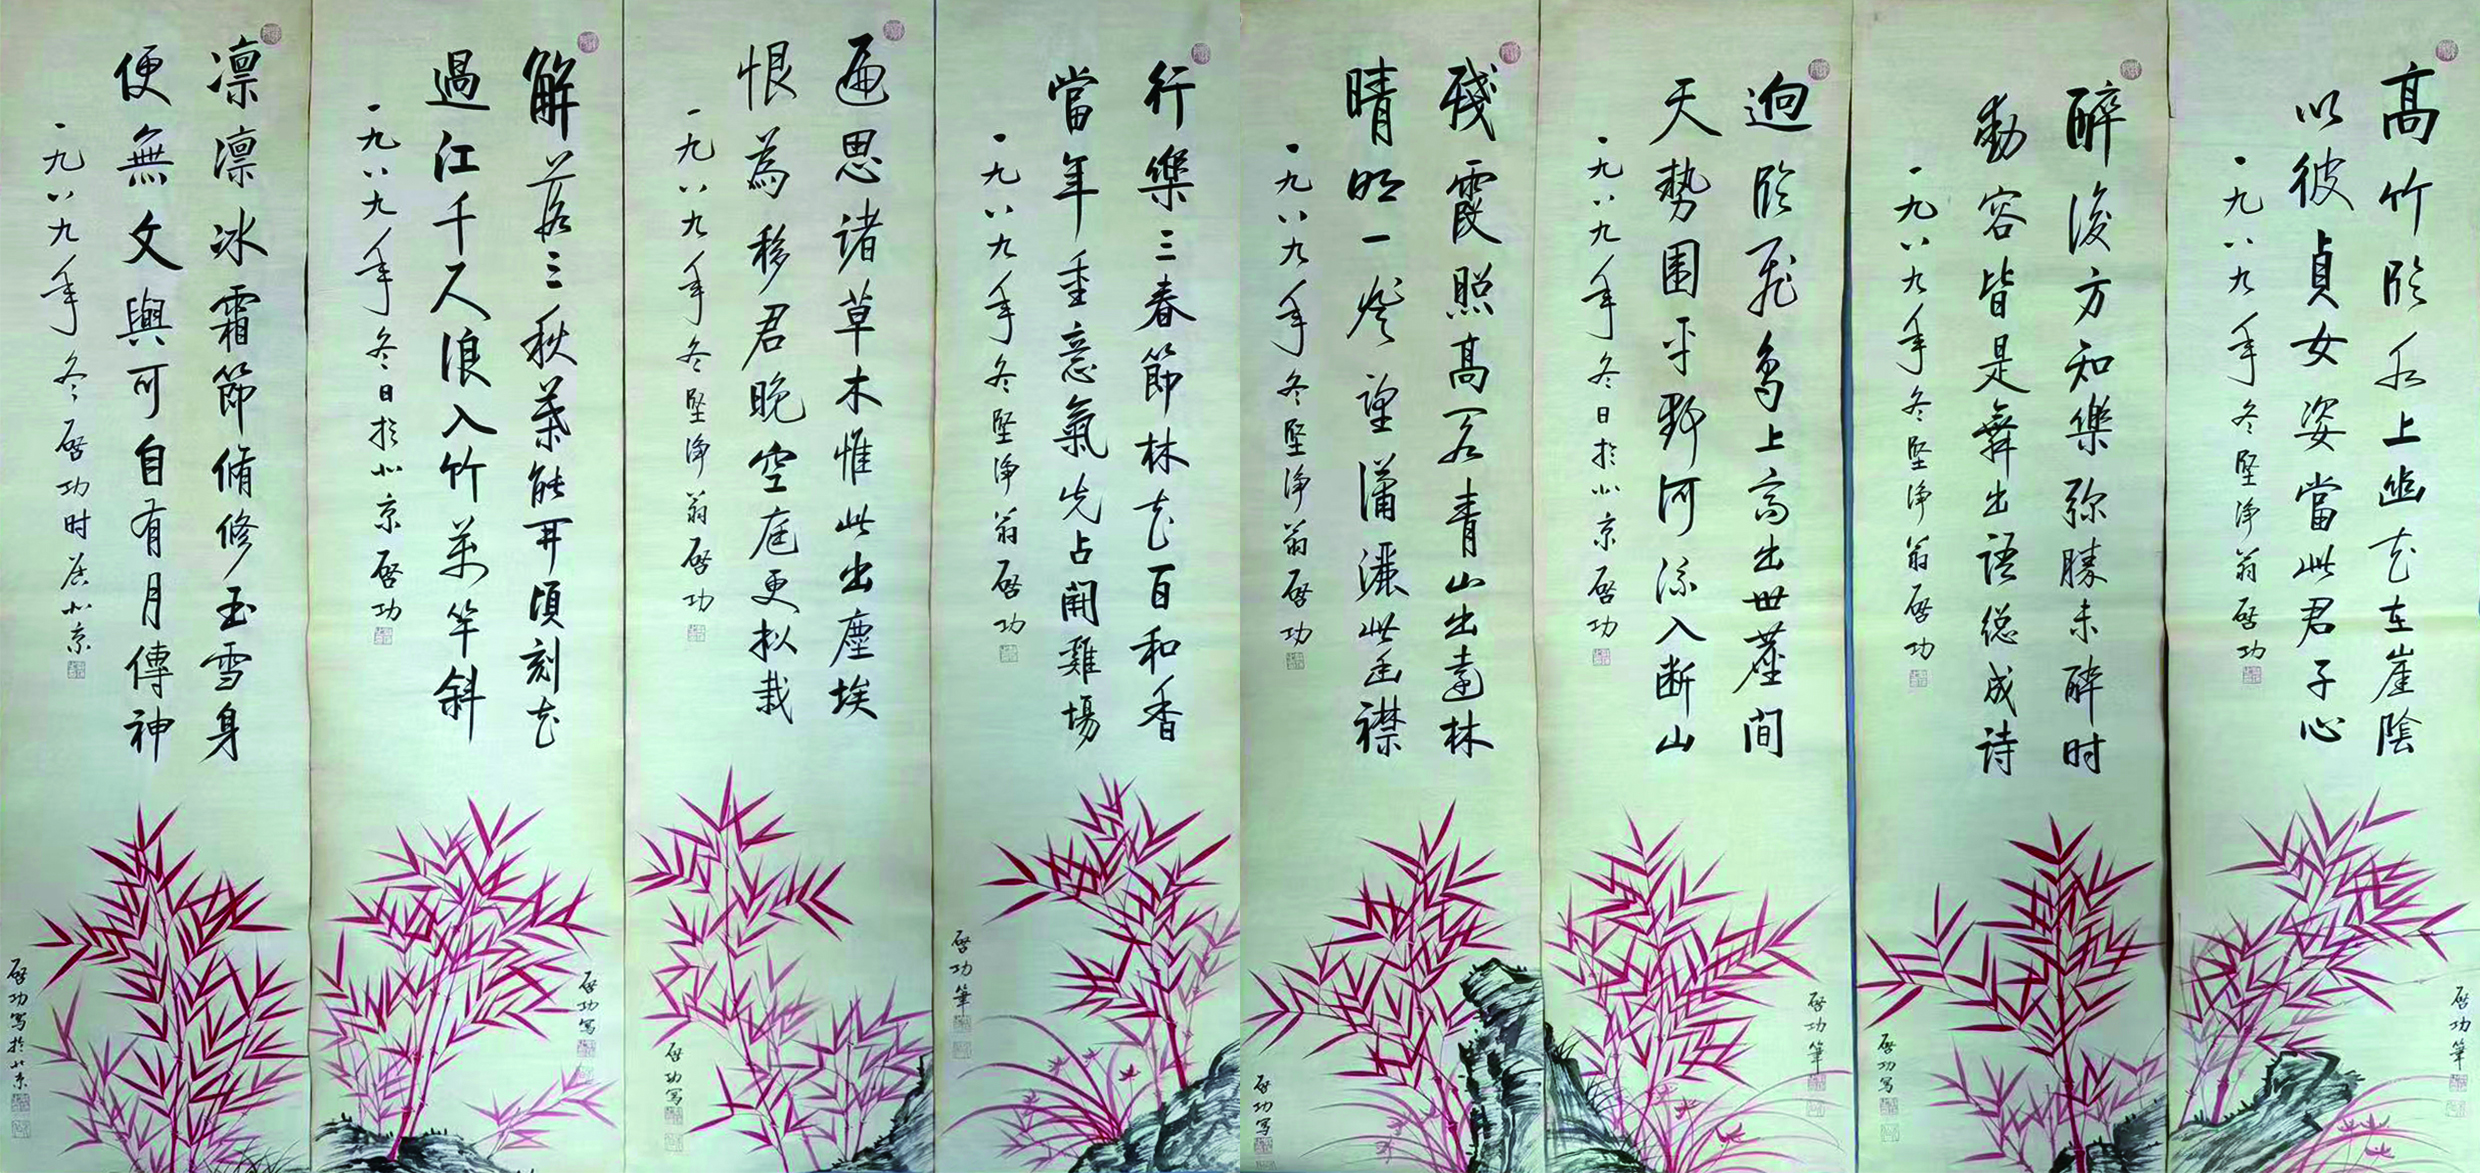 高竹臨水上幽花在崖陰
以彼貞女姿當此君子心
一九八九年冬堅淨翁啓功
啓功筆
醉後方知樂弥勝未醉时
動容皆是舞出語總成诗
一九八九年冬堅淨翁啓功
啓功写
迥臨飛鳥上高出世塵間
天勢圍平野河流入断山
一九八九年冬日於北京啓功
啓功筆
殘霞照高閣青山出遠林
晴明一登望瀟灑此幽襟
一九八九年冬堅淨翁啓功
啓功写
行樂三春節林花百和香
當年重意氣先占鬪雞場
一九八九年冬堅淨翁啓功
啓功筆
遍思诸草木惟此出塵埃
恨為移君晚空庭更拟栽
一九八九年冬堅淨翁啓功
啓功写
解落三秋葉能開頃刻花
過江千尺浪入竹萬竿斜
一九八九年冬日於北京啓功
啓功写
凛凛冰霜節脩修玉雪身
便無文與可自有月傳神
一九八九年冬啓功时居北京
啓功写於北京